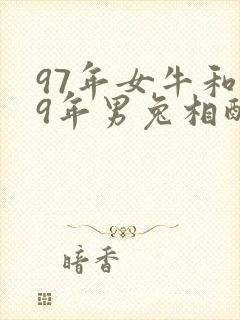 97年女牛和
9年男兔相配
暗香